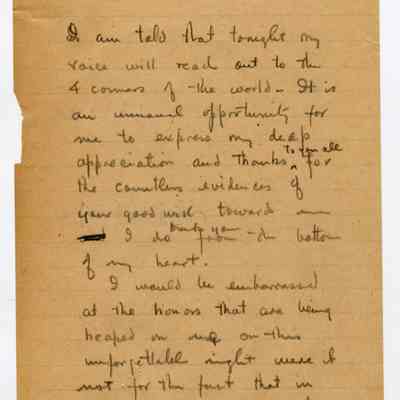 I am told that tonight my
voice will reach out to the
4 corners of the world. It is
an unusual opportunity for
me to express my deep
to you all
appreciation and thanks for
the countless evidences of
your good will, toward me
thank you
I do from the bottom
of my heart.
I would be embarrassed
at the honors that are being
heaped on me on this
unforgettable night were it
not for the fact that in